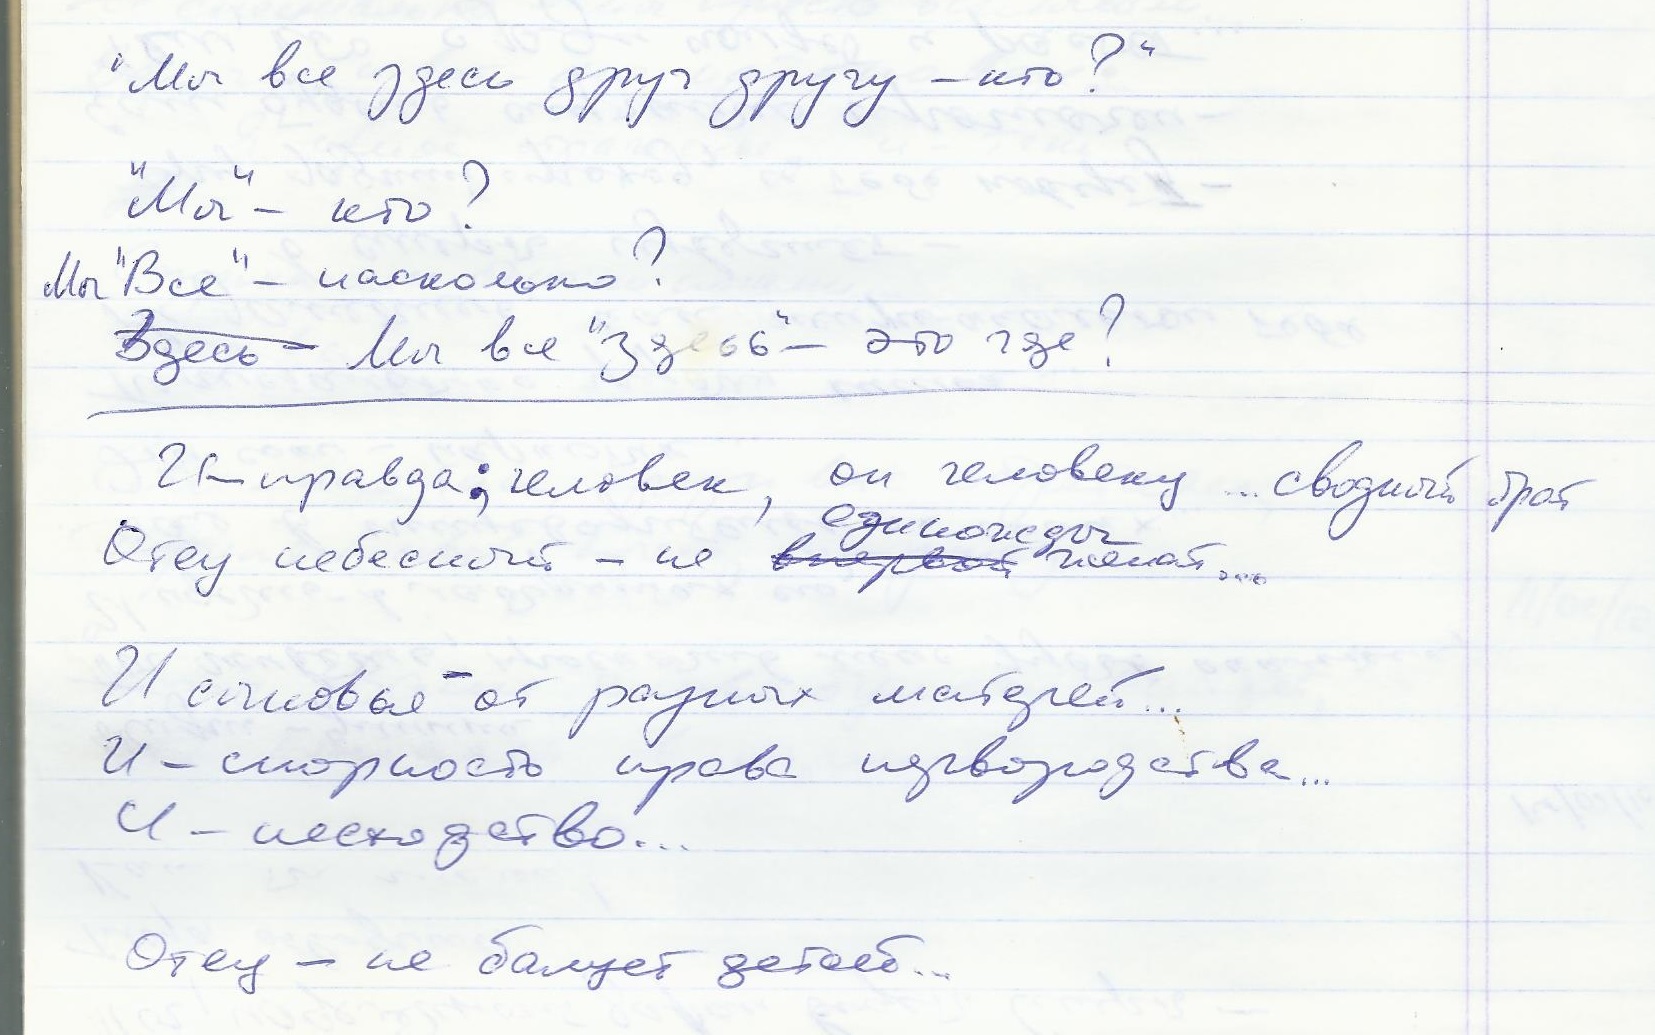 "Мы все здесь друг другу – кто?"
"Мы" – кто?
Мы "Все" – насколько?
Здесь – Мы все "Здесь" – это где?
И – правда; человек, он человеку ... сводный брат
единожды
Отец небесный – не впервой женат...
И сыновья – от разных матерей...
И – спорность права первородства...
И – несходство...
Отец – не балует детей...